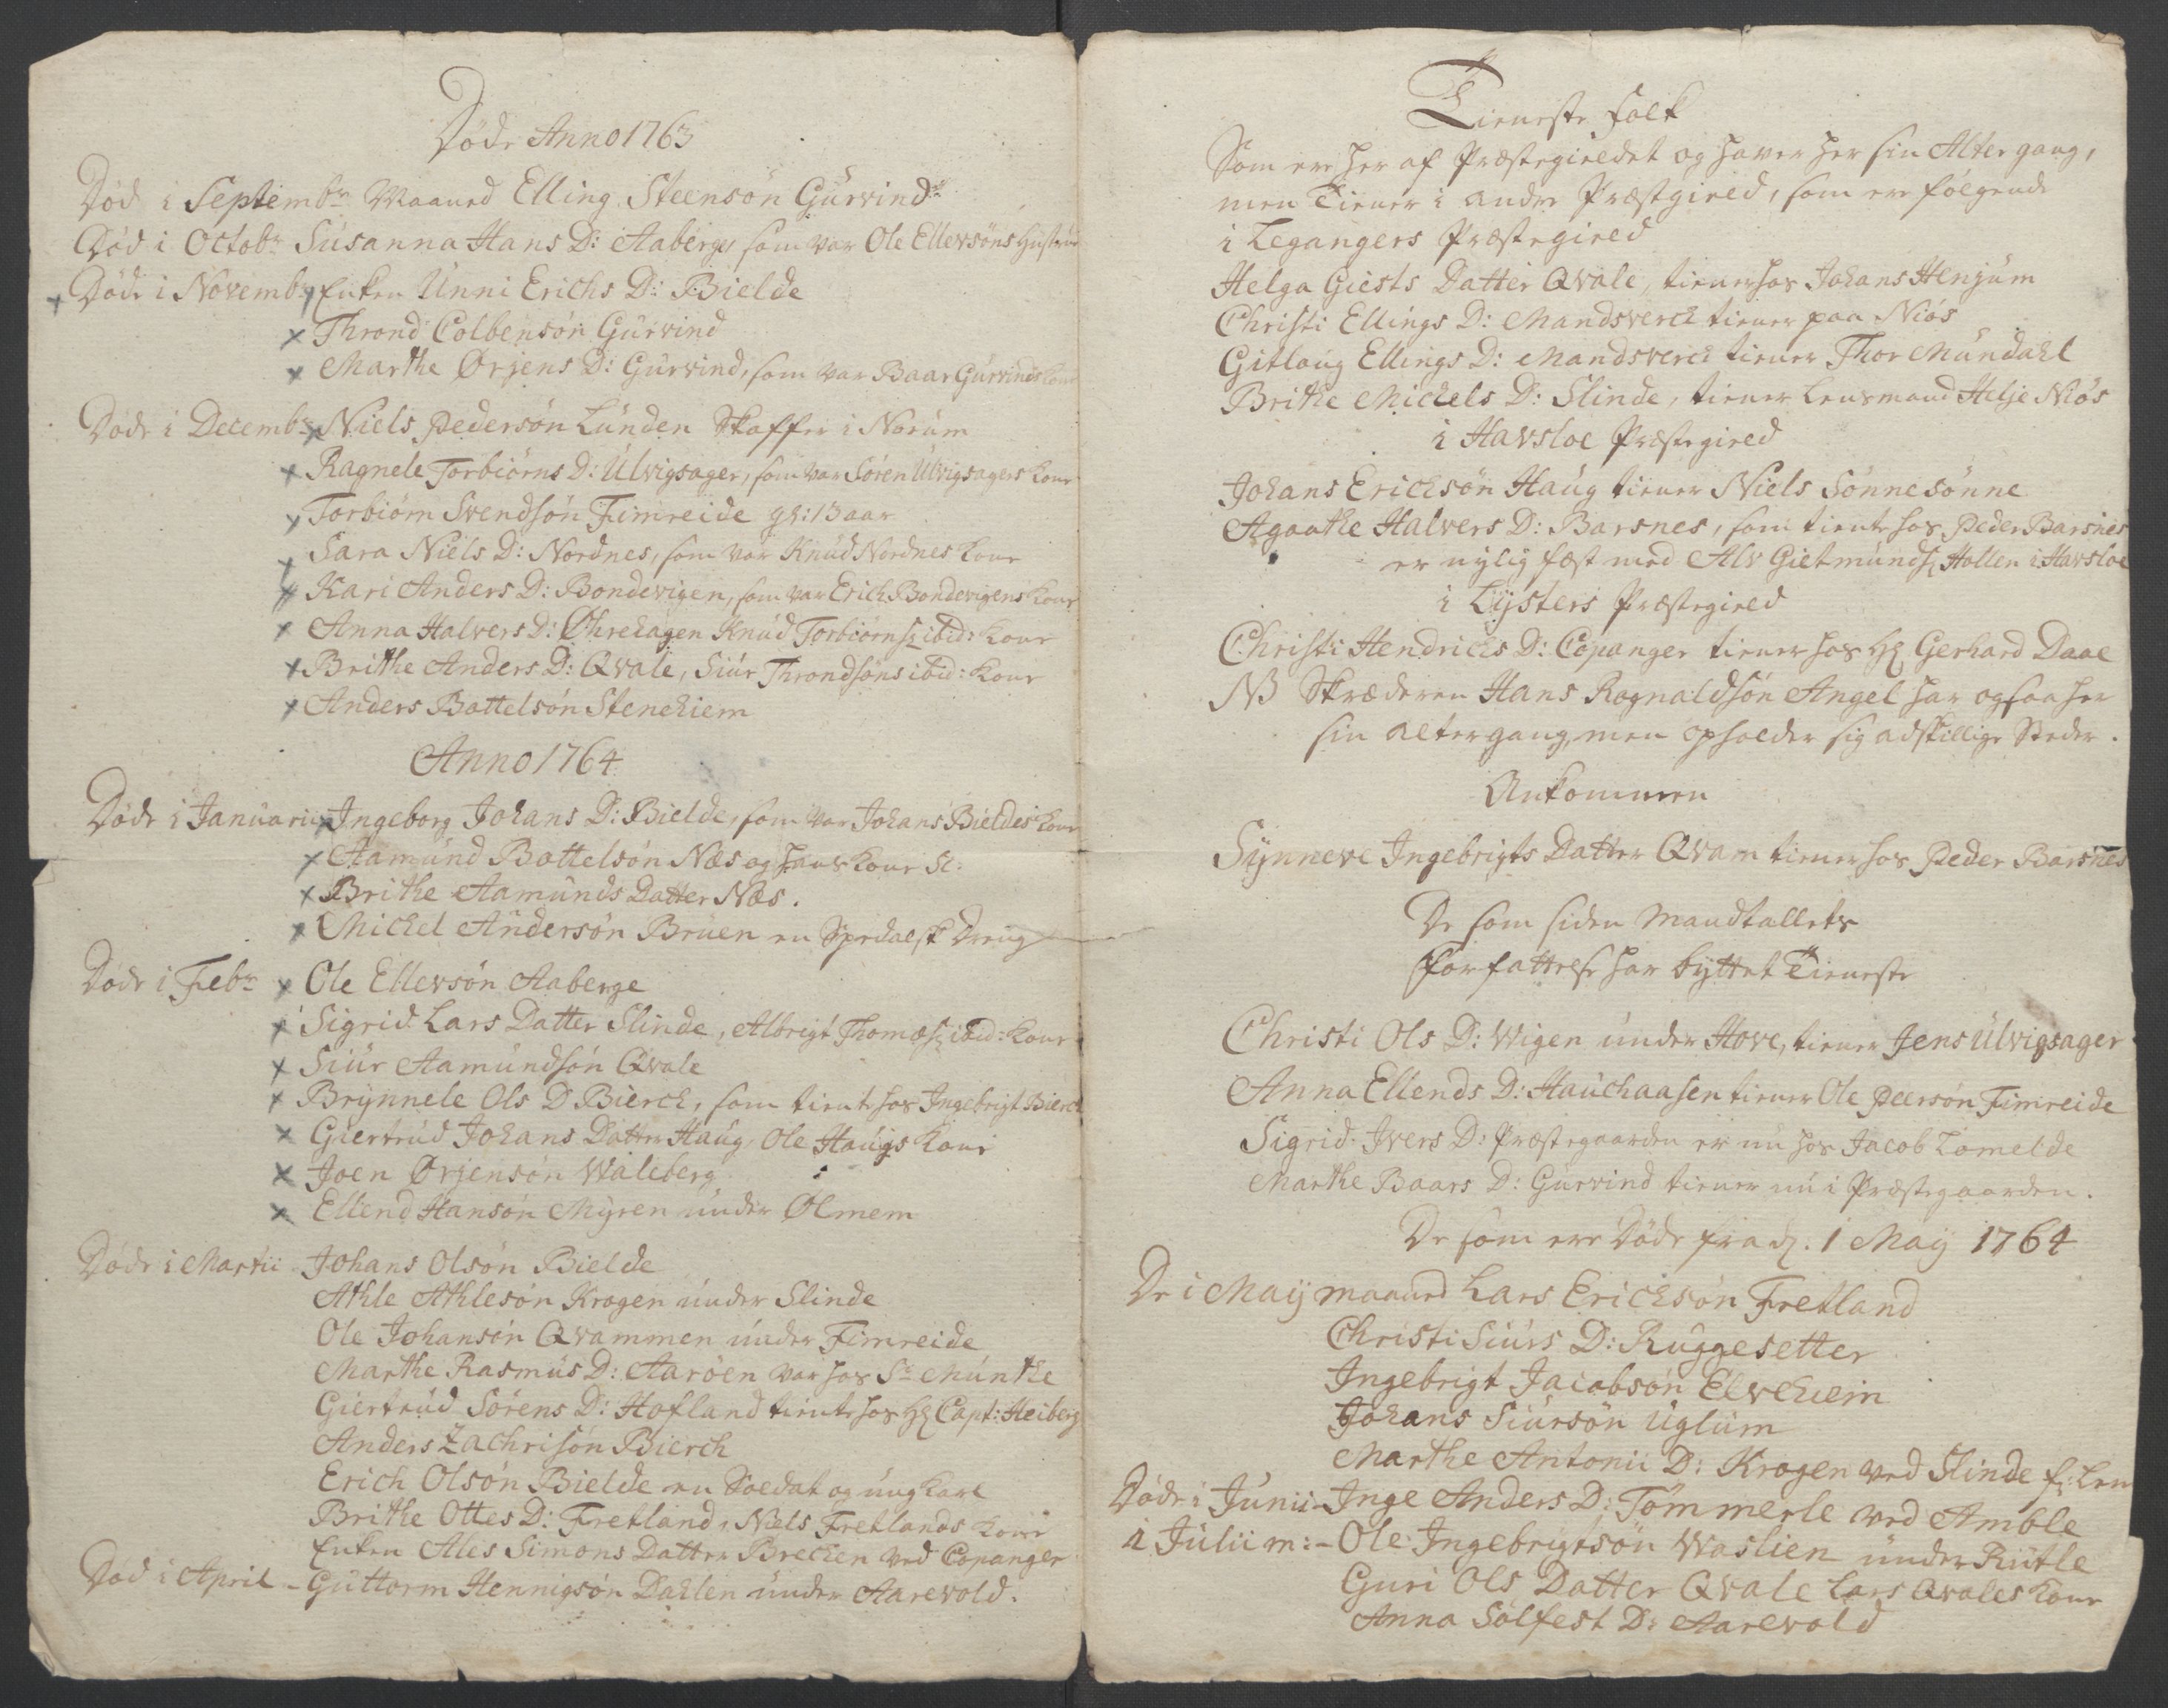 Døde Anno 1763
Død i Septembr Maaned Elling Steensøn Gurvind
Død i Octobr Susanna Hans D: Aaberge, som var Ole Ellevsøns Hustrue
Døde i Novembr Enken Unni Erichs D: Bielde
Thrond Colbensøn Gurvind
Marthe Ørjens D: Gurvind, som var Baar Gurvinds Kone
Døde i Decembr Niels Pedersøn Lunden Skaffer i Norum
Ragnele Torbiørns D: Ulvigsager, som var Søren Ulvigsagers Kone
Torbiørn Svendsøn Fimreide gl: 13 aar
Sara Niels D: Nordnes, som var Knud Nordnes Kone
Kari Anders D: Bondevigen, som var Erich Bondevigens Kone
Anna Halvers D: Øhrehagen Knud Torbiørns: ibid: Kone
Brithe Anders D: Qvale, Siur Throndsøns ibid: Kone
Anders Bottelsøn Stenehiem
Anno 1764
Døde i Januarii Ingeborg Johans D: Bielde, som var Johans Bieldes Kone
Aamund Bottelsøn Næs og hans Kone Sl:
Brithe Aamunds Datter Næs.
Michel Andersøn Bruen en Spedalsk Dreng
Døde i Febr Ole Ellevsøn Aaberge
Sigrid Lars Datter Slinde, Albrigt Thomæs: ibid: Kone
Siur Aamundsøn Qvale
Brynnele Ols D Bierck, som tiente hos Ingebrigt Bierck
Giertrud Johans Datter Haug, Ole Haugs Kone
Joen Ørjensøn Waleberg
Ellend Hansøn Myren under Ølmem
Døde i Martii Johans Olsøn Bielde
Athle Athlesøn Krogen under Slinde
Ole Johansøn Qvammen under Fimreide
Marthe Rasmus D: Aarøen var hos Sr Munthe
Giertrud Sørens D: Hofland tiente hos Hr Capt: Heiberg
Anders Zachrisøn Bierch
Erich Olsøn Bielde en Soldat og ung Karl
Brithe Ottes D: Fretland, Niels Fretlands Kone
Enken Ales Simons Datter Brecken ved Copanger
Død i April - Guttorm Hennigsøn Dahlen under Aarevold.
Tieneste Folk
Som ere her af Præstegieldet og haver her sin Altergang,
men Tiener i andre Præstgield, som ere følgende
i Legangers Præstegield
Helga Giests Datter Qvale, tiener hos Johans Henjum
Christi Ellings D: Mandsverck tiener paa Niøs
Gitlaug Ellings D: Mandsverck tiener Thor Mundahl
Brithe Michels D: Slinde, tiener Lensmand Helje Niøs
i Havsloe Præstegield
Johans Erichsøn Haug tiener Niels Sønnesønne
Agaathe Halvers D: Barsnes, som tiente hos Peder Barsnes
er nylig fæst med Alv Gietmunds: Hollen i Havsloe
i Lysters Præstegield
Christi Hendrichs D: Copanger tiener hos Hr Gerhard Daae
NB Skræderen Hans Rognaldsøn Angel har ogsaa her
sin altergang, men opholder sig adskillige Steder.
Ankommen
Synneve Ingebrigts Datter Qvam tiener hos Peder Barsnes
De som siden Mandtallets
Forfattelse har byttet Tieneste
Christi Ols D: Wigen under Hove, tiener Jens Ulvigsager
Anna Ellends D: Hauchaasen tiener Ole Peersøn Fimreide
Sigrid Ivers D: Præstegaarden er nu hos Jacob Lomelde
Marthe Baars D: Gurvind tiener nu i Præstegaarden.
De som ere Døde fra d: 1 May 1764
De i Maij maaned Lars Erichsøn Fretland
Christi Siurs D: Ruggesetter
Ingebrigt Jacobsøn Elvehiem
Johans Siursøn Uglum
Marthe Antonii D: Krogen ved Slinde
Døde i Junii - Inge Anders D: Tømmerle ved Amble
i Julii m: - Ole Ingebrigtsøn Waslien under Rutle
Guri Ols Datter Qvale Lars Qvales Kone
Anna Sølfest D: Aarevold